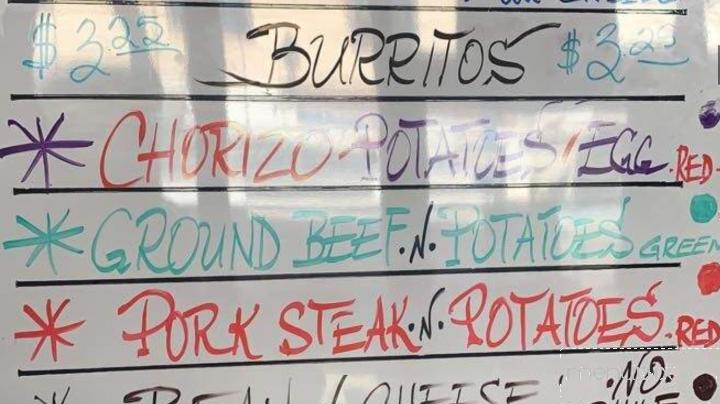 $3.25 BURRITOS $3.25
* CHORIZO POTATOES/EGG.RED
* GROUND BEEF.N.POTATOES GREEN
* PORK STEAK.N.POTATOES.RED
* BEAN/CHEESE